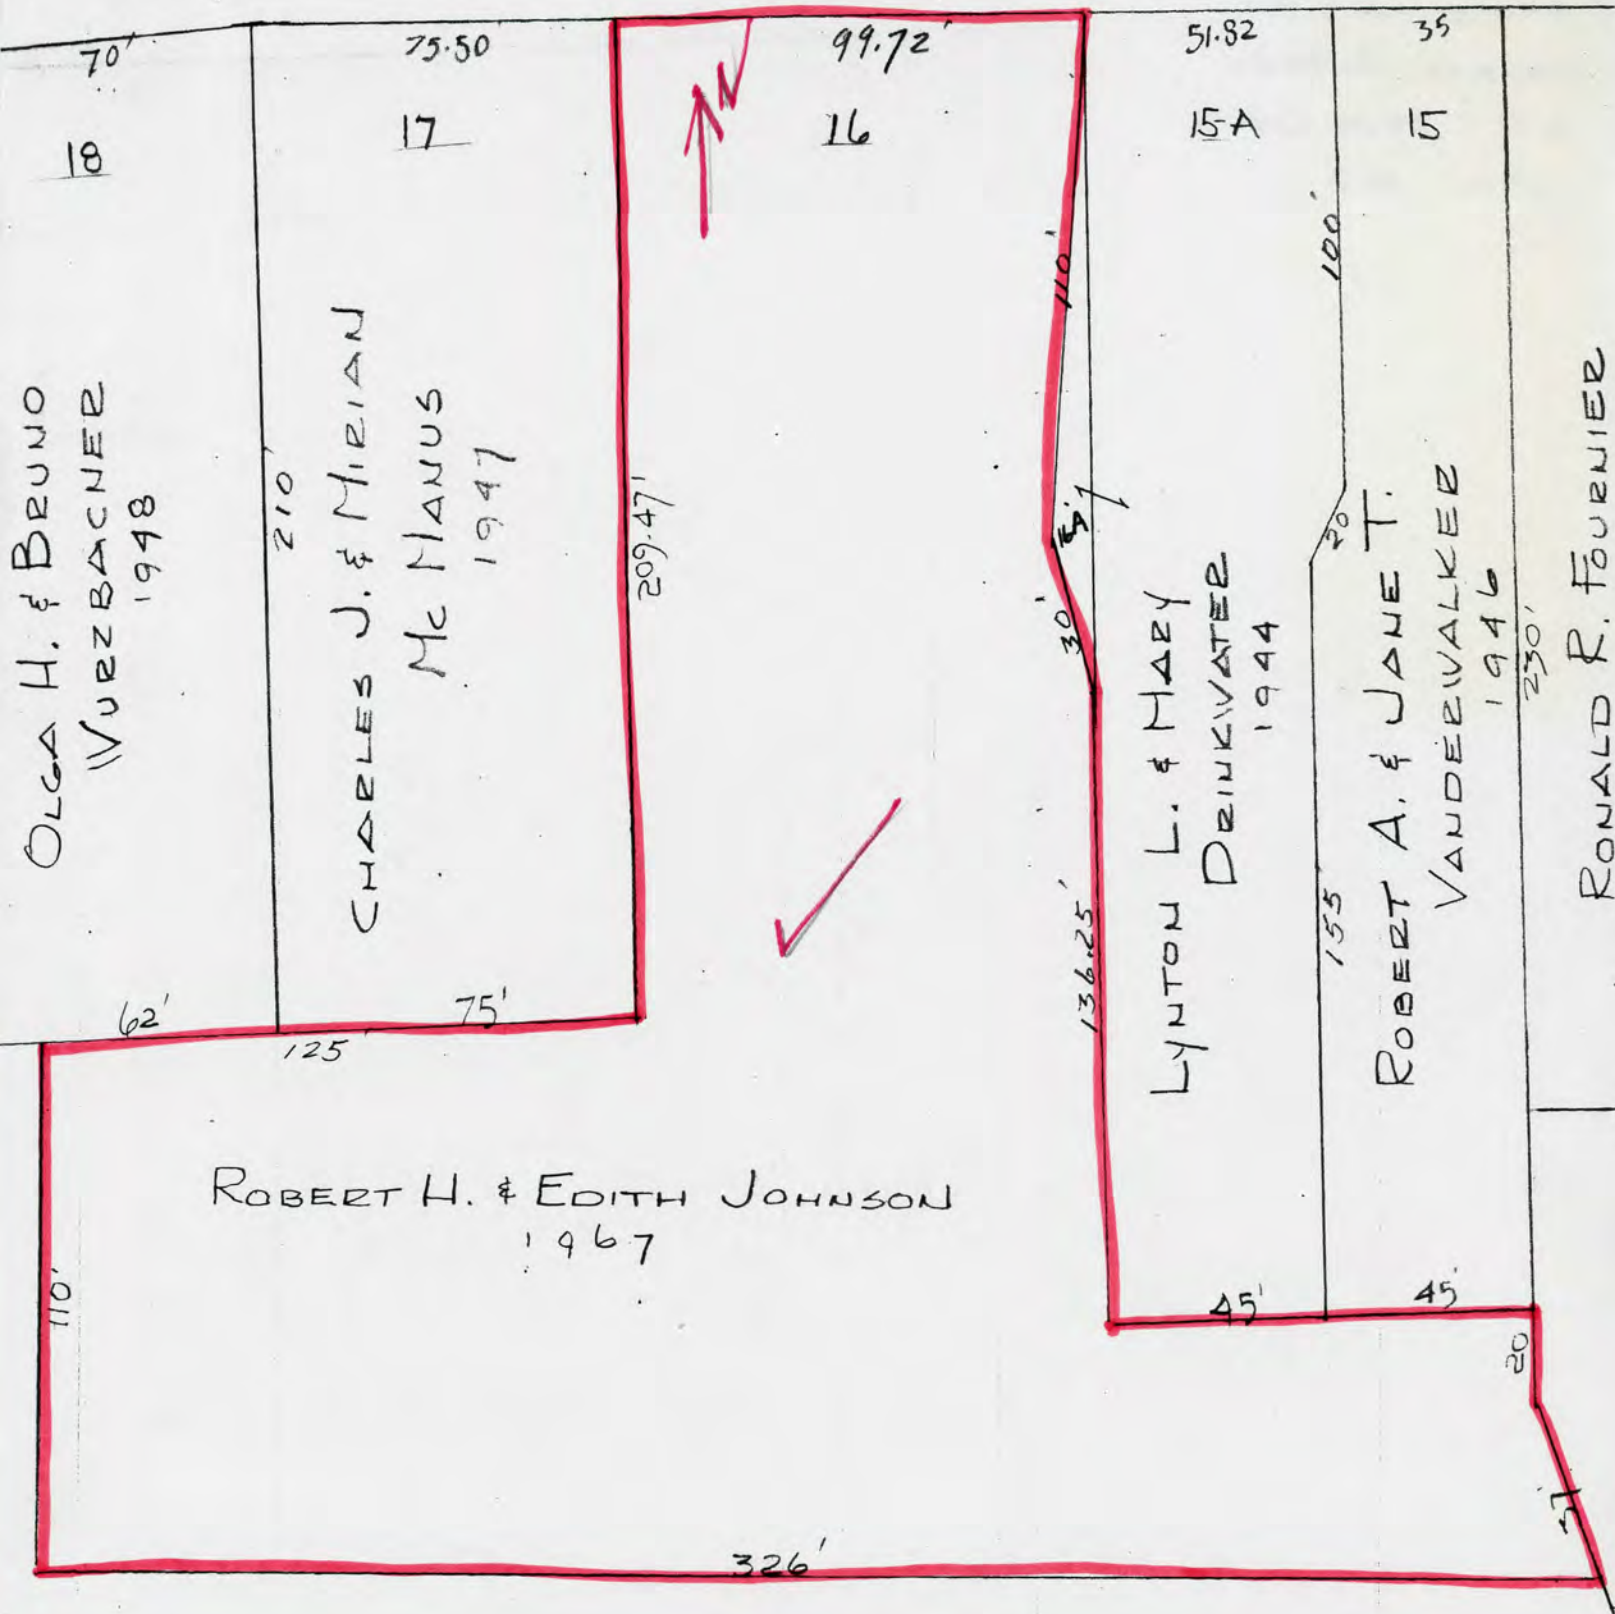 70'
75.50
99.72'
51.82
35
18
17
16
15-A
15
OLGA H. & BRUNO
WURZBACHER
1948
210'
CHARLES J. & MIRIAN
Mc MANUS
1947
209.47'
N
110'
30'
136.25'
LYNTON L. & MARY
DRINKWATER
1944
100'
20'
155'
ROBERT A. & JANE T.
VANDERWALKER
1946
230'
RONALD R. FOURNIER
62'
75'
125
ROBERT H. & EDITH JOHNSON
1967
110'
45'
45'
20
326'